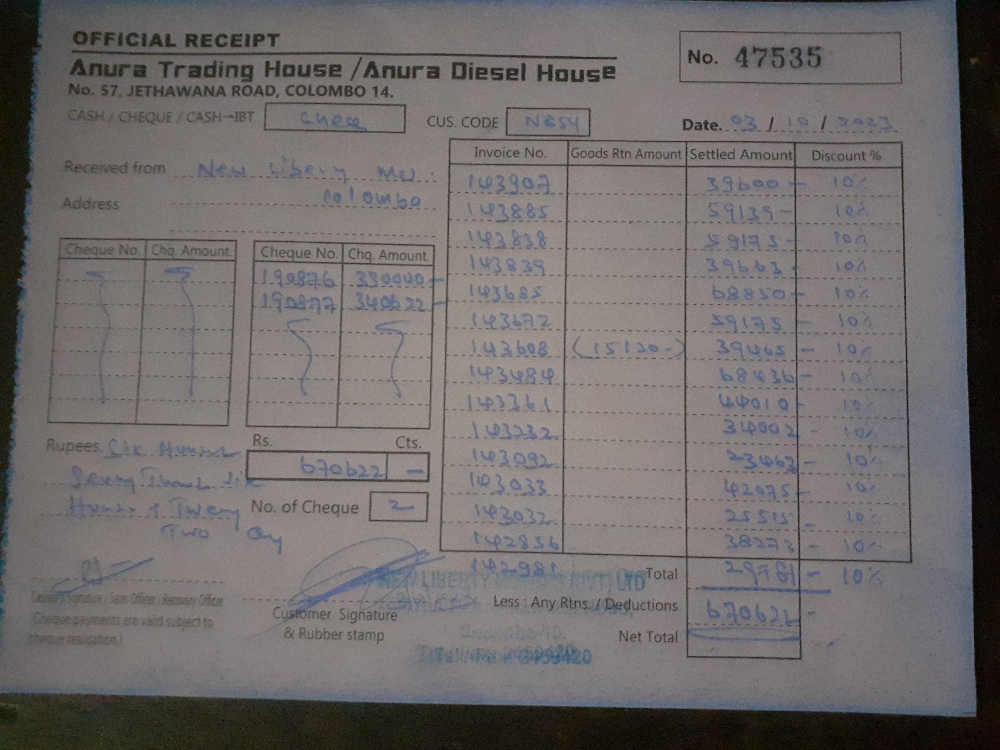 OFFICIAL RECEIPT
Anura Trading House / Anura Diesel House
No. 57, JETHAWANA ROAD, COLOMBO 14.
No. 47535
CASH / CHEQUE / CASH→IBT
CUS. CODE NB54
Date. 03 / 10 / 2023
Received from New Libery
Address Colombo
Cheque No. Chq. Amount.
Cheque No. Chq. Amount.
190876 330000-
190877 340622-
Invoice No. Goods Rtn Amount Settled Amount Discount %
143907 39600- 10%
143885 59139- 10%
143838 59175- 10%
143839 39663- 10%
143685 68850- 10%
143672 59175- 10%
143608 (15120-) 39465- 10%
143484 68436- 10%
143361 44010- 10%
143232 34002- 10%
143092 23463- 10%
143033 42075- 10%
143032 25515- 10%
142856 38273- 10%
142981 29781- 10%
Rupees. Six
Two
Rs. Cts.
670622 -
No. of Cheque 2
Total
Less : Any Rtns. / Deductions 670622-
Net Total
Cashier's Signature / Sales Officer / Recovery Officer
(Cheque payments are valid subject to
cheque realization.)
Customer Signature
& Rubber stamp
NEW LIBERTY